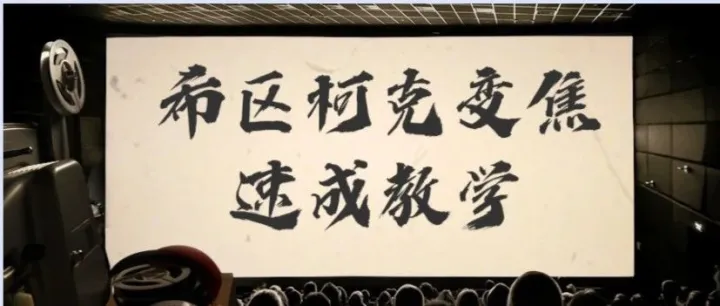 希区柯克变焦
速成教学